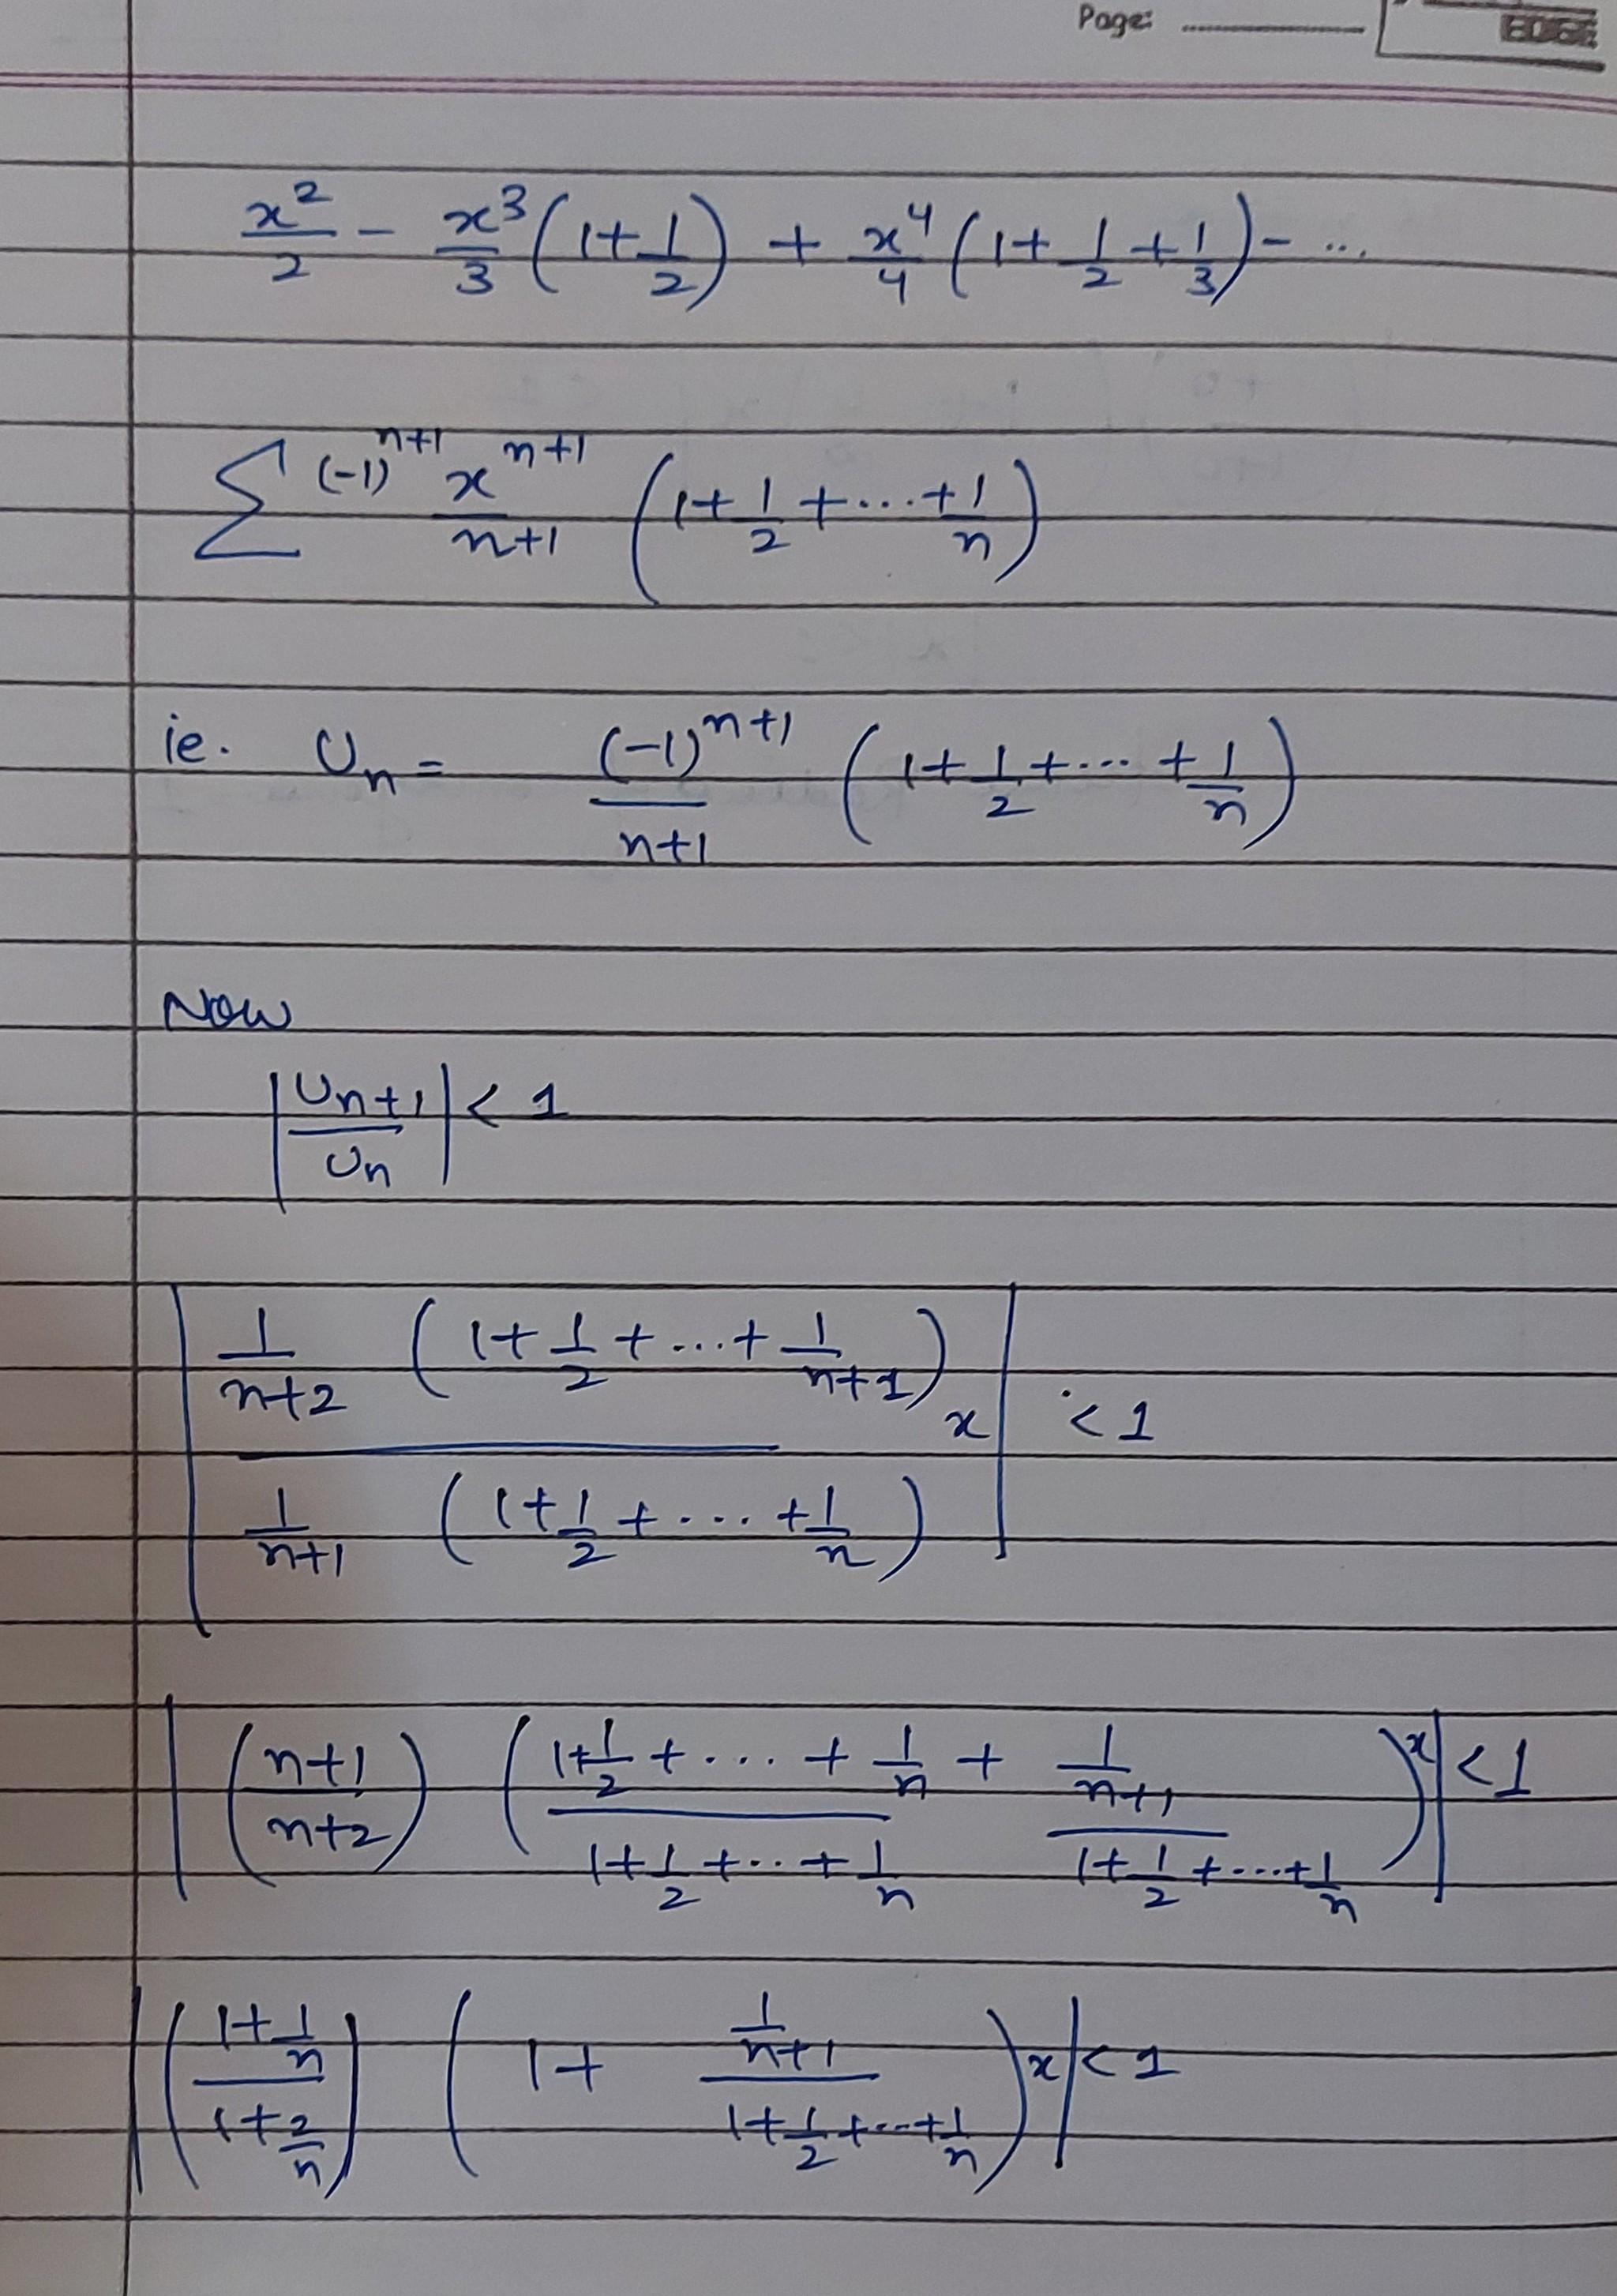 Page:
EDGE
x²/2 - x³/3 (1+1/2) + x⁴/4 (1+1/2+1/3) - ...
∑ (-1)^(n+1) x^(n+1)/(n+1) (1+1/2+...+1/n)
ie. Un = (-1)^(n+1)/(n+1) (1+1/2+...+1/n)
Now
|Un+1/Un| < 1
|(1/(n+2) (1+1/2+...+1/(n+1)))/(1/(n+1) (1+1/2+...+1/n)) x| < 1
|((n+1)/(n+2)) ((1+1/2+...+1/n)/(1+1/2+...+1/n) + (1/(n+1))/(1+1/2+...+1/n)) x| < 1
|((1+1/n)/(1+2/n)) (1 + (1/(n+1))/(1+1/2+...+1/n)) x| < 1